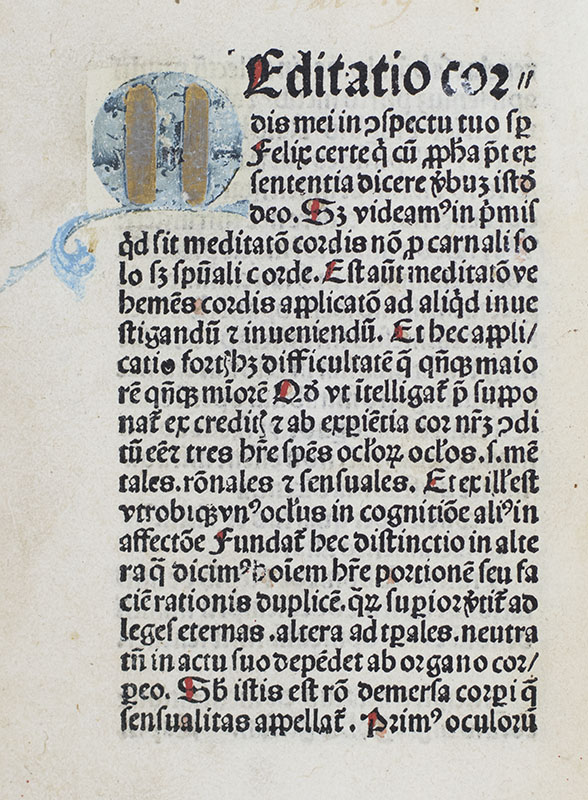 MEditatio cor⸗
dis mei in ↄspectu tuo sꝑ
Felix certe q̇ cū ꝓph̄a p̄t ex
sententia dicere ꝟbuȝ istð
deo. Sȝ videamꝰ in pͥmis
qͥd sit meditatō cordis nō ꝑ carnali so
lo sȝ spūali corde. Est aūt meditatō ve
hemēs cordis applicatō ad aliqͥd inue
stigandū ⁊ inueniendū. Et hec appli/
catio fort̄ hȝ difficultatē q̄ qn̄qꝫ maio
rē qn̄qꝫ mīorē Qð vt ītelligat᷑ p̄ suppo
nat᷑ ex credit̄ ⁊ ab exꝑiētia cor nr̄ȝ ↄdi
tū eē ⁊ tres hr̄e spēs ocl̓oꝝ ocl̓os .s. mē
tales. rōnales ⁊ sensuales. Et ex ill̓ est
vtrobiqꝫ vnꝰ ocl̓us in cognitiōe aliꝰ in
affectōe Fundat᷑ hec distinctio in alte
ra q̄ dicimꝰ hoīem hr̄e portionē seu fa
ciē rationis duplicē. qͣꝝ suꝑior ꝟtit᷑ ad
leges eternas .altera ad tꝑales. neutra
tn̄ in actu suo depēdet ab organo cor/
ꝑeo. Sb̄ istis est rō demersa corꝑi q̄
sensualitas appellat᷑. Primꝰ oculorū